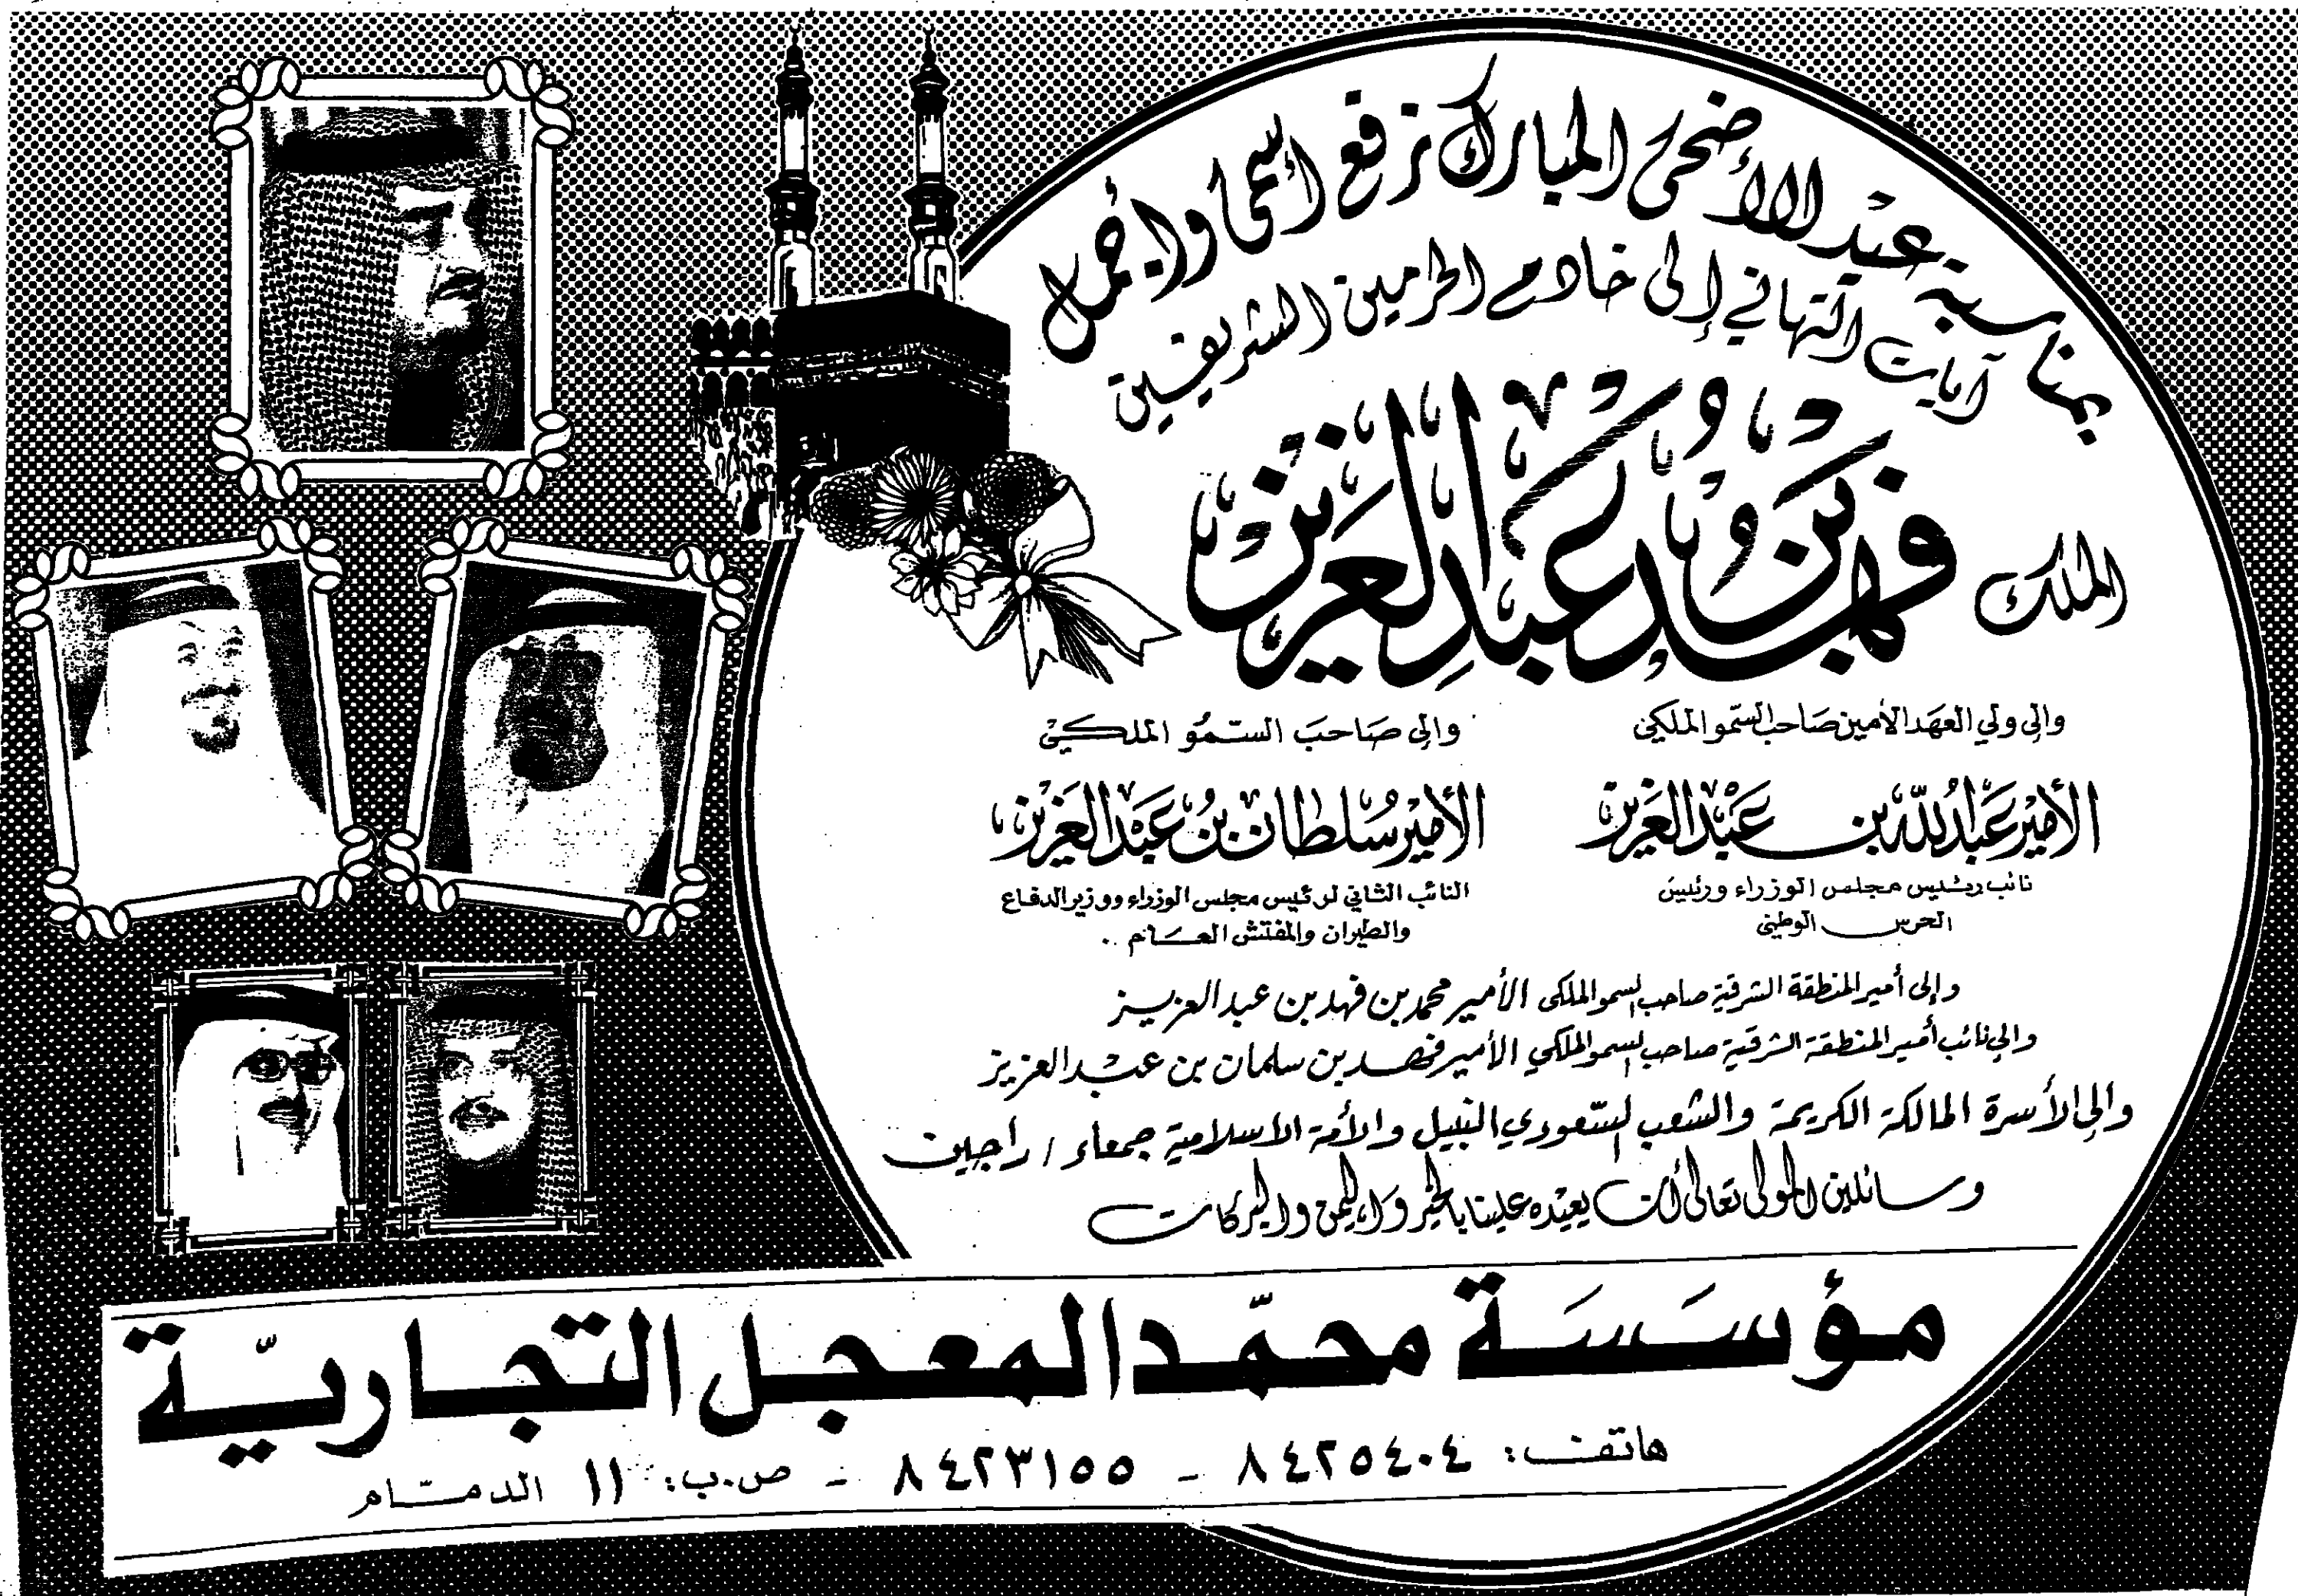 بمناسبة عيد الأضحى المبارك نرفع أسمى وأجمل
آيات التهاني إلى خادم الحرمين الشريفين
الملك فهد بن عبد العزيز
وإلى ولي العهد الأمين صاحب السمو الملكي
الأمير عبد الله بن عبد العزيز
نائب رئيس مجلس الوزراء ورئيس
الحرس الوطني
وإلى صاحب السمو الملكي
الأمير سلطان بن عبد العزيز
النائب الثاني لرئيس مجلس الوزراء ووزير الدفاع
والطيران والمفتش العام ..
وإلى أمير المنطقة الشرقية صاحب السمو الملكي الأمير محمد بن فهد بن عبد العزيز
وإلى نائب أمير المنطقة الشرقية صاحب السمو الملكي الأمير فهد بن سلمان بن عبد العزيز
وإلى الأسرة المالكة الكريمة والشعب السعودي النبيل والأمة الاسلامية جمعاء / راجين
وسائلين المولى تعالى أن يعيده علينا بالخير واليمن والبركات
مؤسسة محمد المعجل التجارية
هاتف: ٨٤٢٥٤٠٤ - ٨٤٢٣١٥٥ - ص.ب: ١١ الدمام